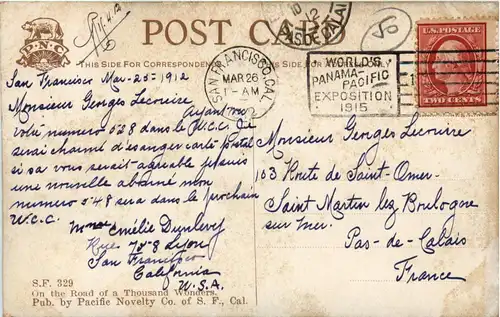 POST CARD
P.N.C.
THIS SIDE FOR CORRESPONDENCE
ONLY
SAN FRANCISCO, CAL.
MAR 26
1-AM
WORLD'S
PANAMA-PACIFIC
EXPOSITION
1915
10
12
PAS-DE-CALAIS
50
U.S. POSTAGE
TWO CENTS
San Francisco Mar-25-1912
Monsieur Georges Lecouvre
Ayant vu
votre numero 528 dans le W.C.C. Je
serai charmé d'esanger carte postal
si sa vous serait agreable je suis
une nouvelle abonné mon
numero 548 sera dans le prochain
W.C.C.
Mme Emélie Dunlevy
Rue 728 Lyon
San Francisco
California
U.S.A.
Monsieur Georges Lecouvre
103 Route de Saint-Omer-
Saint Martin lez Boulogne
sur mer.
Pas-de-Calais
France
S.F. 329
On the Road of a Thousand Wonders.
Pub. by Pacific Novelty Co. of S. F., Cal.